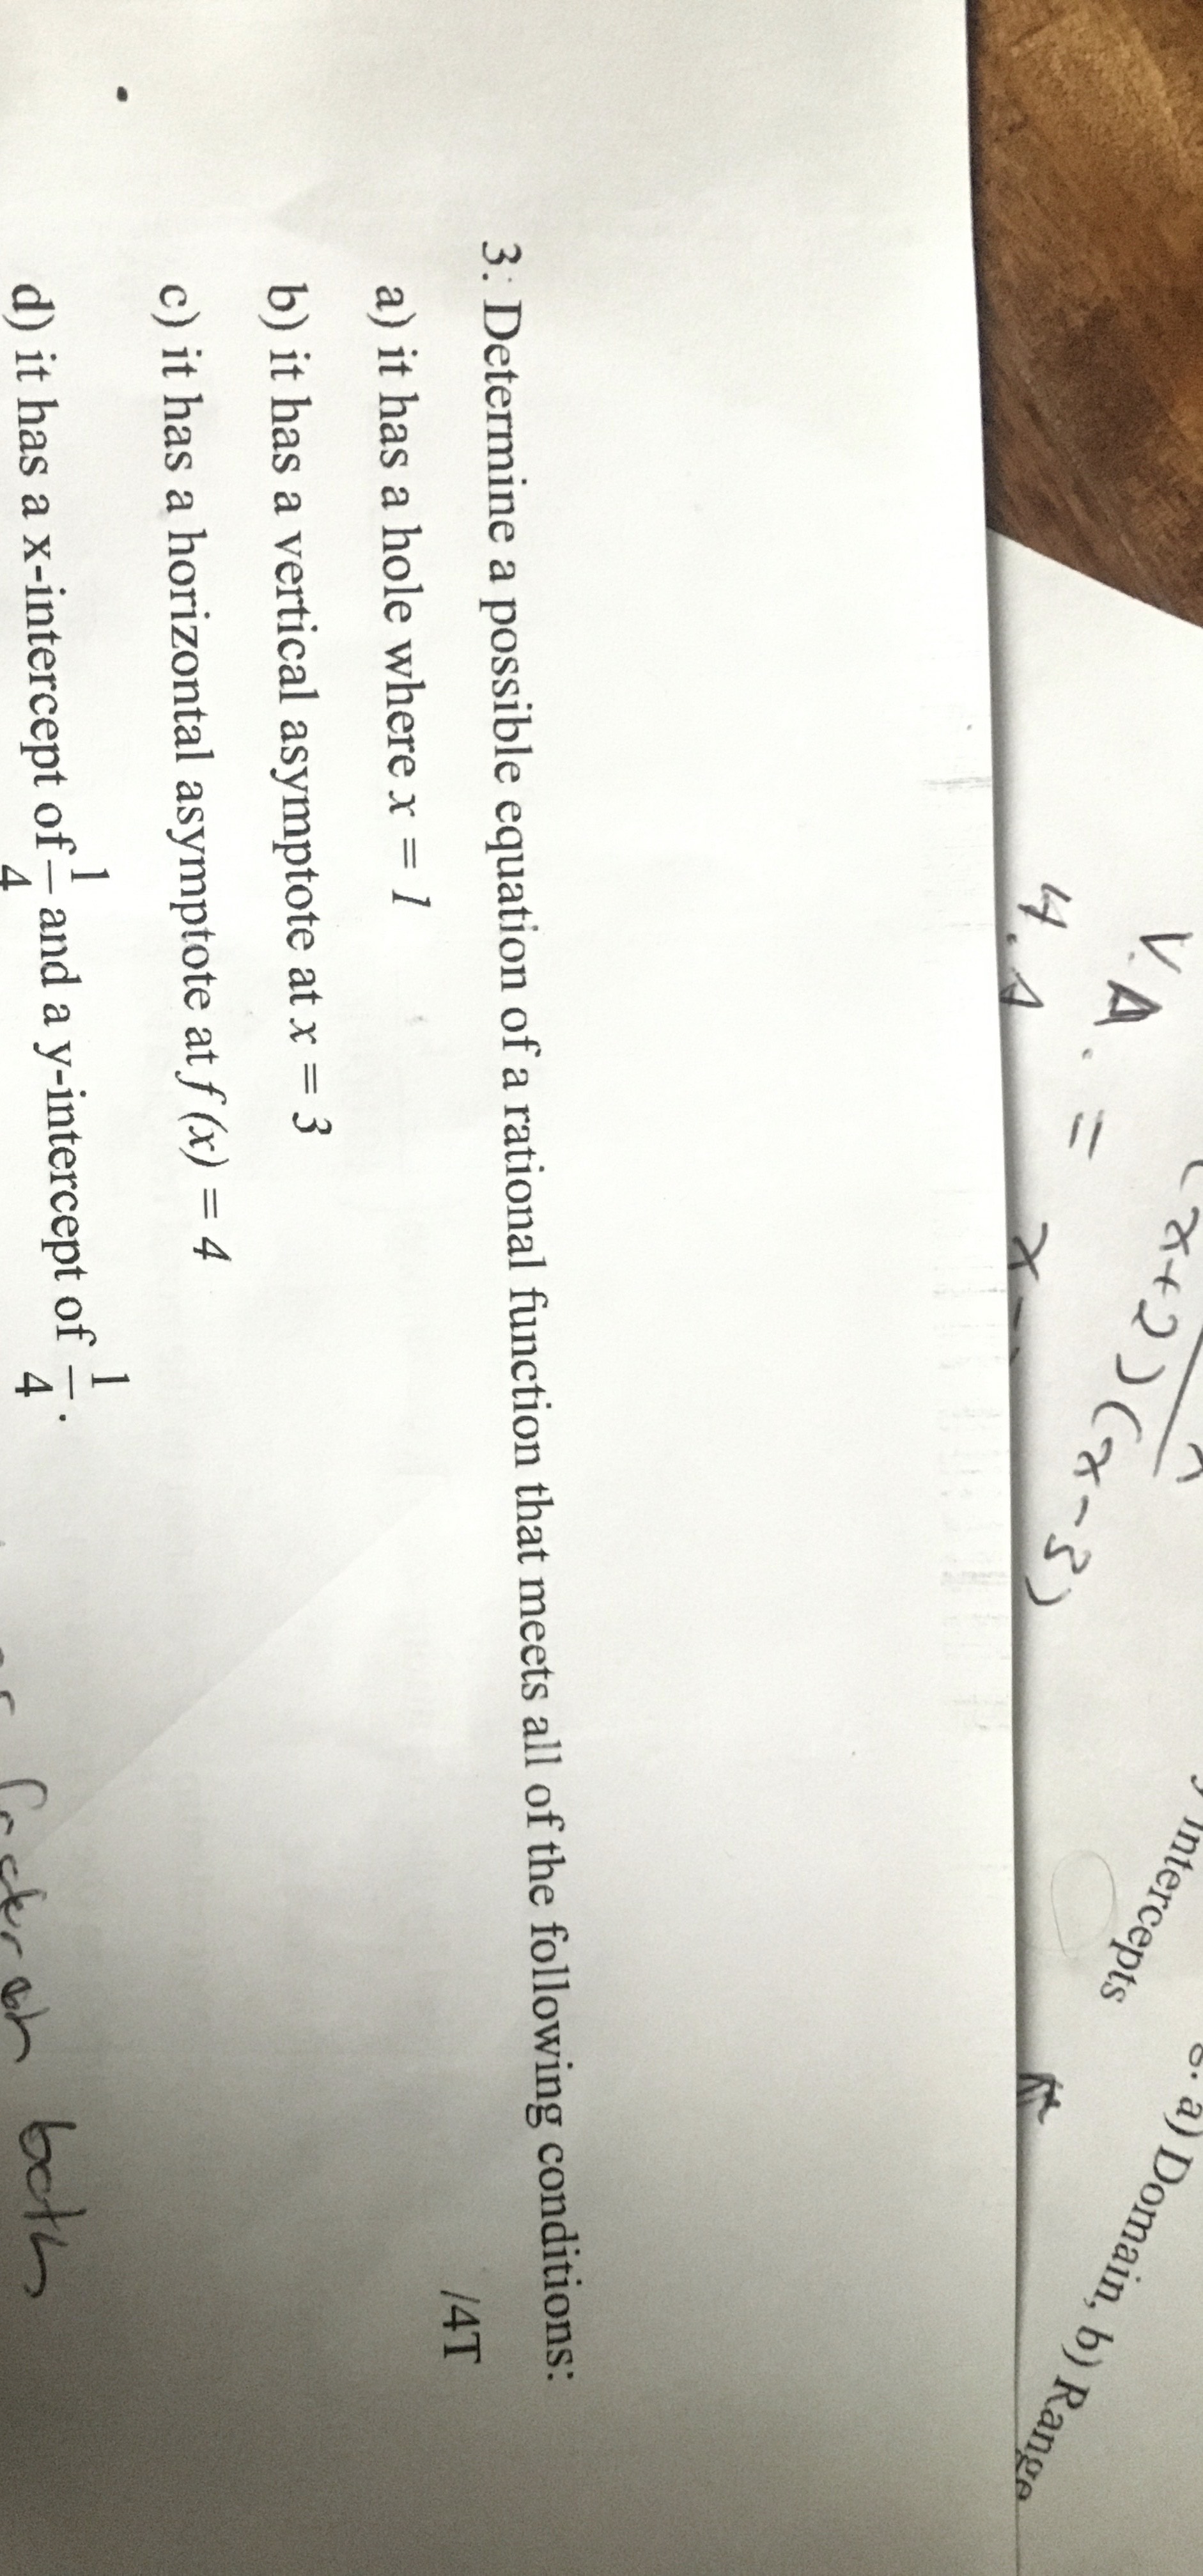 (x+2)(x-5)
V.A. =
H.A x-
y intercepts
6. a) Domain, b) Range
3. Determine a possible equation of a rational function that meets all of the following conditions:
/4T
a) it has a hole where x = 1
b) it has a vertical asymptote at x = 3
c) it has a horizontal asymptote at f (x) = 4
d) it has a x-intercept of 1/4 and a y-intercept of 1/4.
both